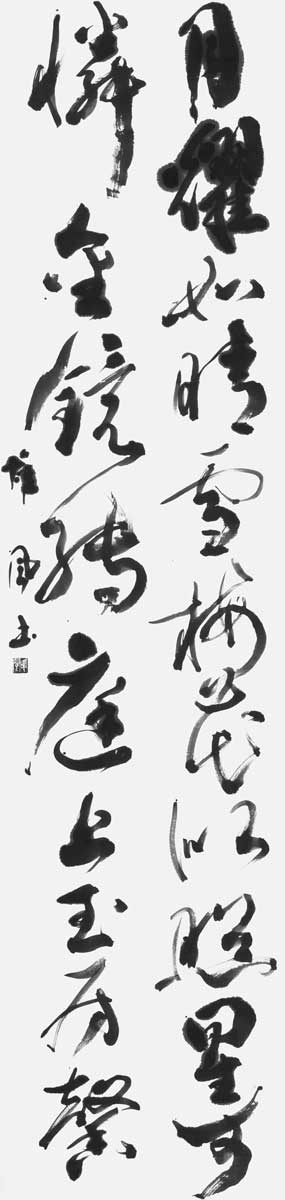 月耀如晴雪梅花似照星可
憐金鏡轉庭上玉房馨